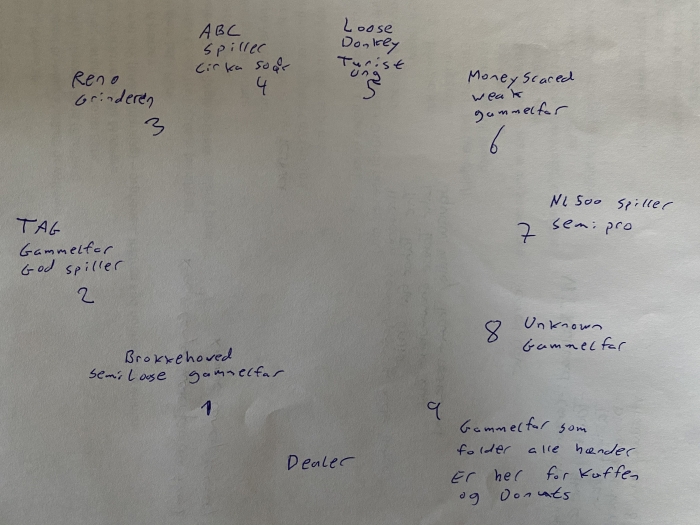 ABC
Spiller
Cirka 50år
4
Loose
Donkey
Turist
ung
5
Reno
Grinderen
3
Money Scared
weak
gammelfar
6
NL 500 spiller
semi pro
7
TAG
Gammelfar
God spiller
2
8
Unknown
Gammelfar
Brokkehoved
semi Loose gammelfar
1
9
Gammelfar som
folder alle hænder
Er her for Kaffen
og Donuts
Dealer